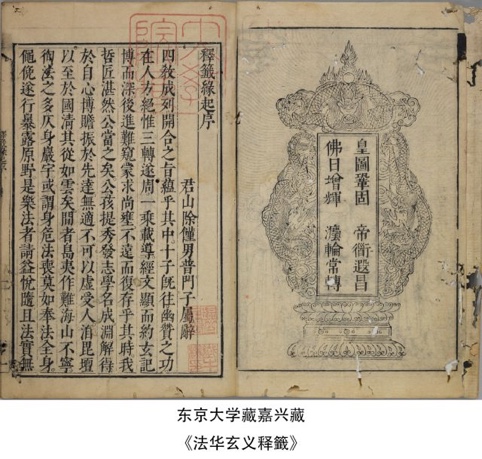 皇圖鞏固 帝衜遐昌
佛日增輝 灋輪常轉
釋籤緣起序
君山除饉男普門子屬辭
四教成列開合之旨蘊乎其中十子既往幽贊之功
在人方絕惟三轉遂周一乘載導經文顯而約玄記
博而深後進難窺蒙求尚壅不遠而復存乎其時我
哲匠湛然公當之矣公孩提秀發志學名成淵解得
於自心博贍振於先達無適不可以虛受人洎毘壇
以至於國清其從如雲矣間者島夷作難海山不寧
徇法之多仄身嚴宇或謂身危法喪莫如奉法全身
僶俛遂行暴露原野是樂法者請益悅隨且法實無
东京大学藏嘉兴藏
《法华玄义释籖》